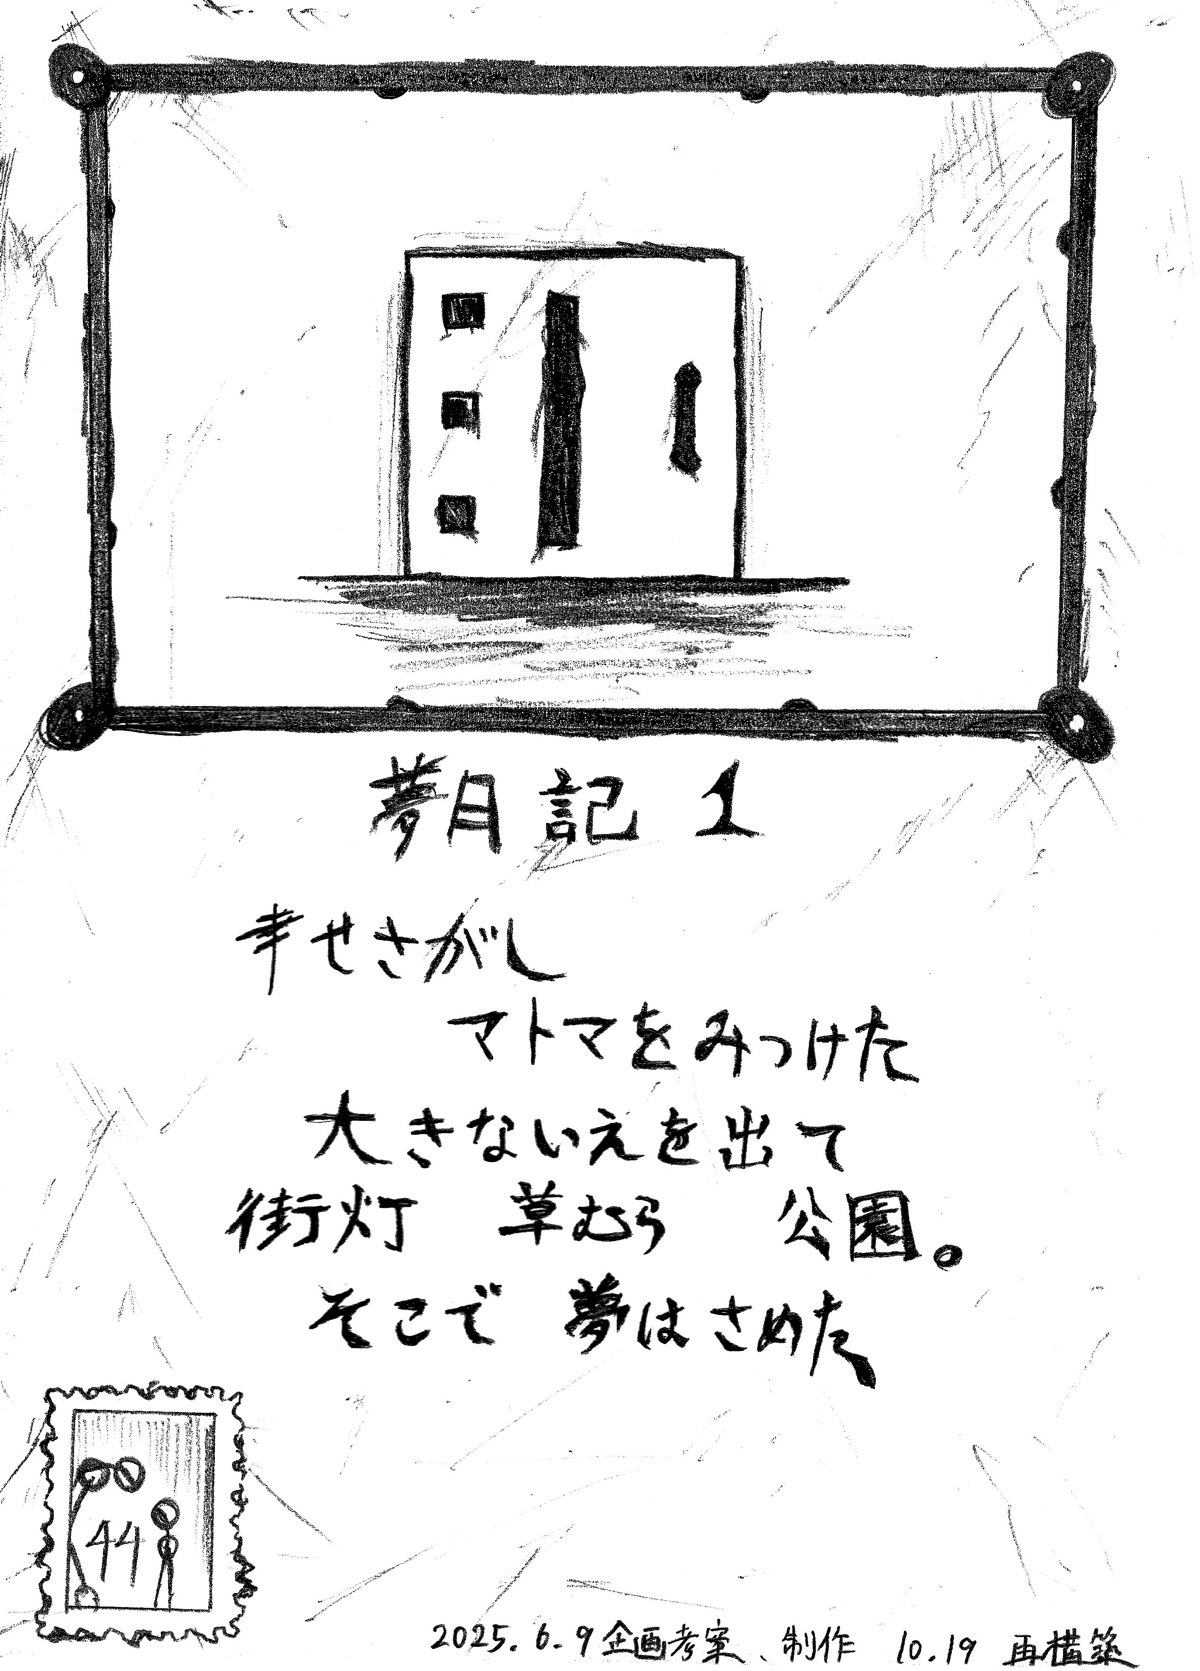 夢月記 1
幸せさがし
マトマをみつけた
大きないえを出て
街灯 草むら 公園。
そこで 夢はさめた
44
2025.6.9企画考案、制作 10.19 再構築